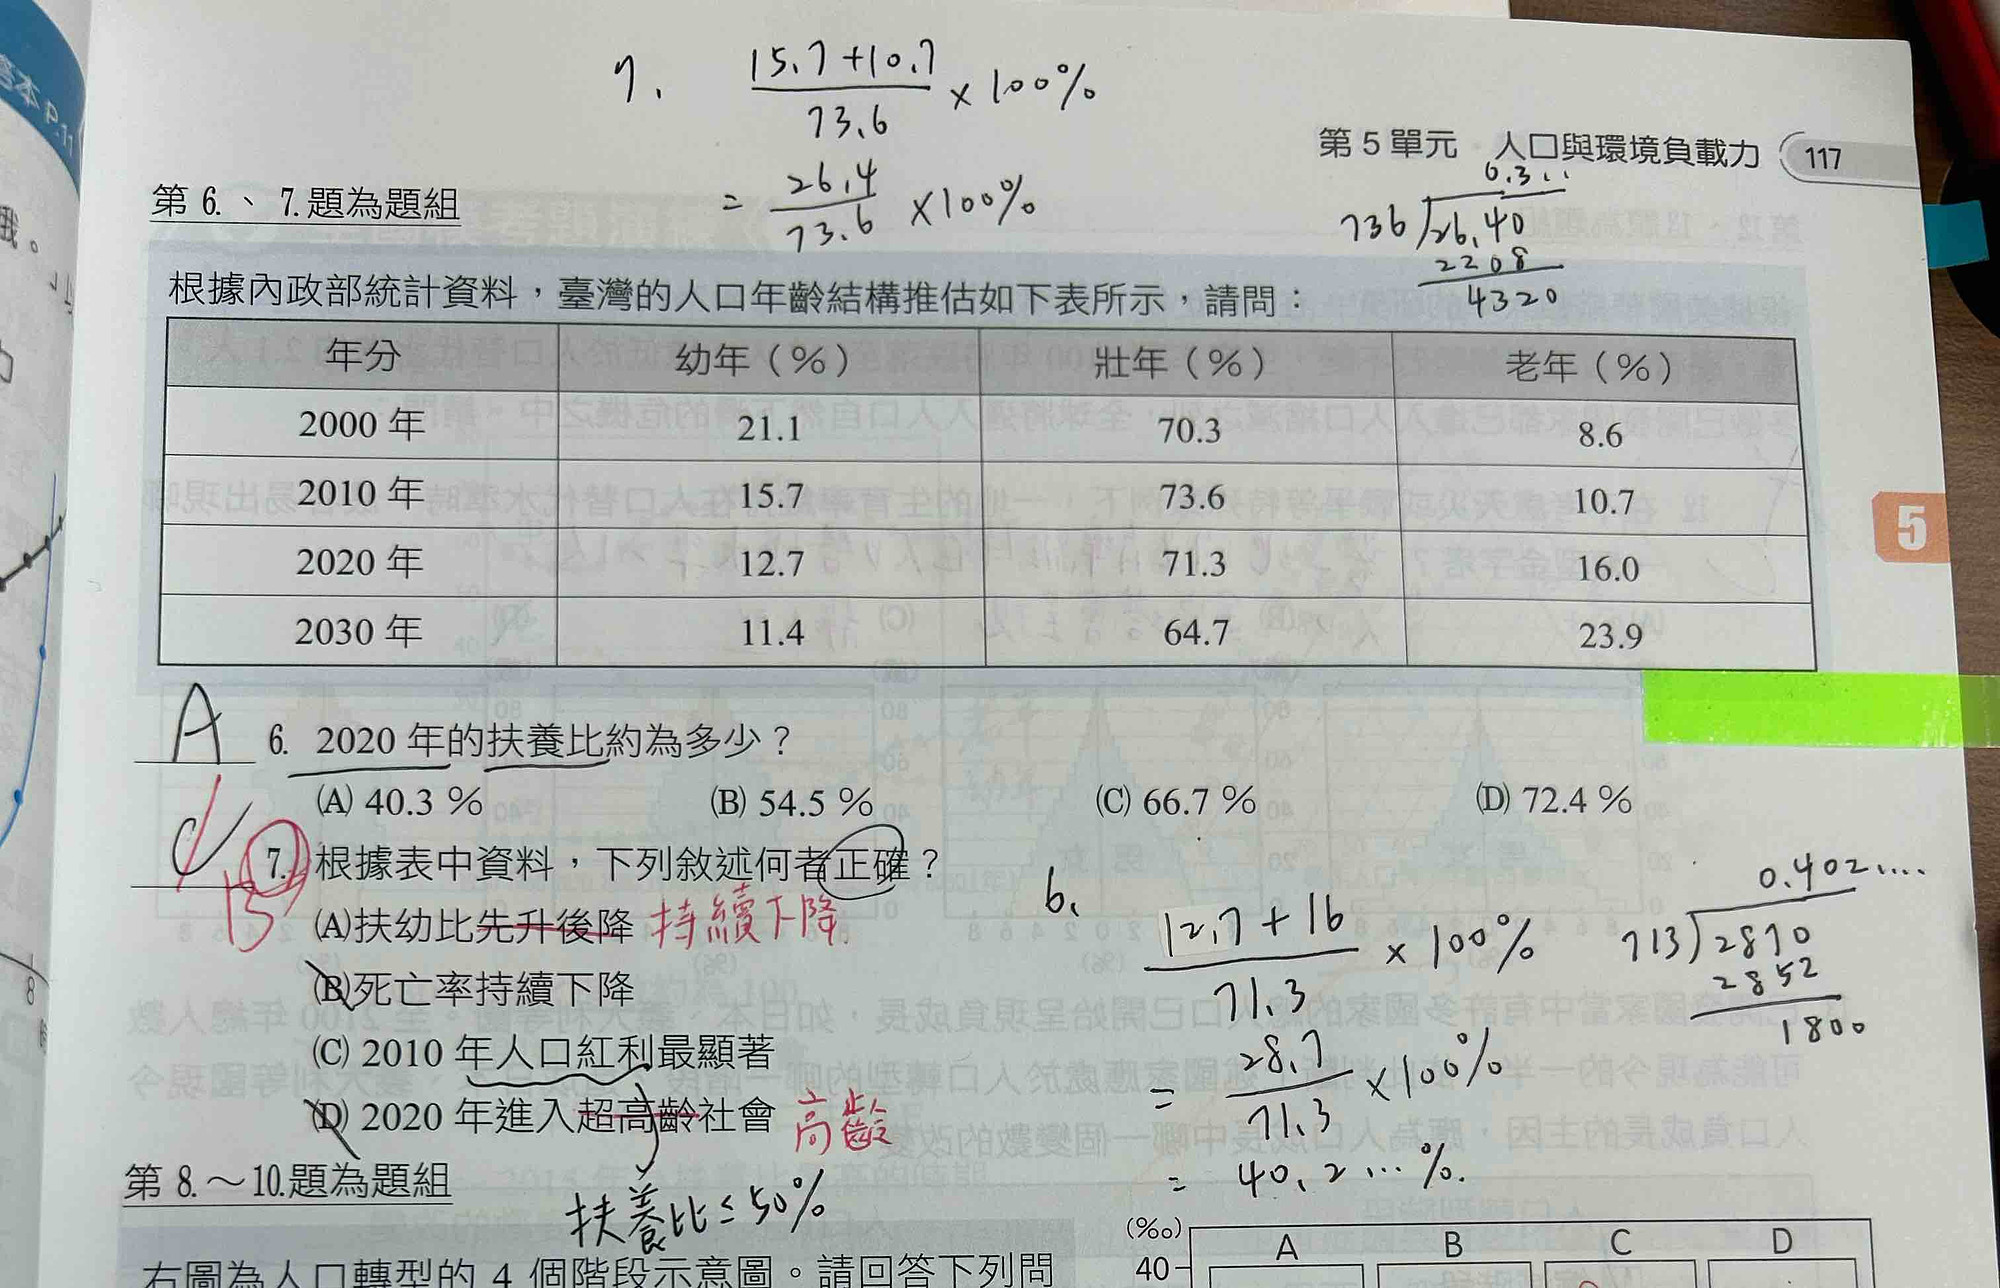 7. 15.7+10.7 / 73.6 × 100%
= 26.4 / 73.6 ×100%
第 5 單元 人口與環境負載力 117
0.3...
736 26.40
2208
4320
第 6.、7.題為題組
根據內政部統計資料，臺灣的人口年齡結構推估如下表所示，請問：
年分 幼年（%） 壯年（%） 老年（%）
2000 年 21.1 70.3 8.6
2010 年 15.7 73.6 10.7
2020 年 12.7 71.3 16.0
2030 年 11.4 64.7 23.9
5
A 6. 2020 年的扶養比約為多少？
(A) 40.3 % (B) 54.5 % (C) 66.7 % (D) 72.4 %
C 7. 根據表中資料，下列敘述何者正確？
(A)扶幼比先升後降 持續下降
(B)死亡率持續下降
(C) 2010 年人口紅利最顯著
(D) 2020 年進入超高齡社會 高齡
扶養比≤50%
6. 12.7+16 / 71.3 × 100%
= 28.7 / 71.3 ×100%
= 40.2...%.
0.402....
713 2870
2852
1800
第 8.～10.題為題組
右圖為人口轉型的 4 個階段示意圖。請回答下列問
(‰)
40
A B C D